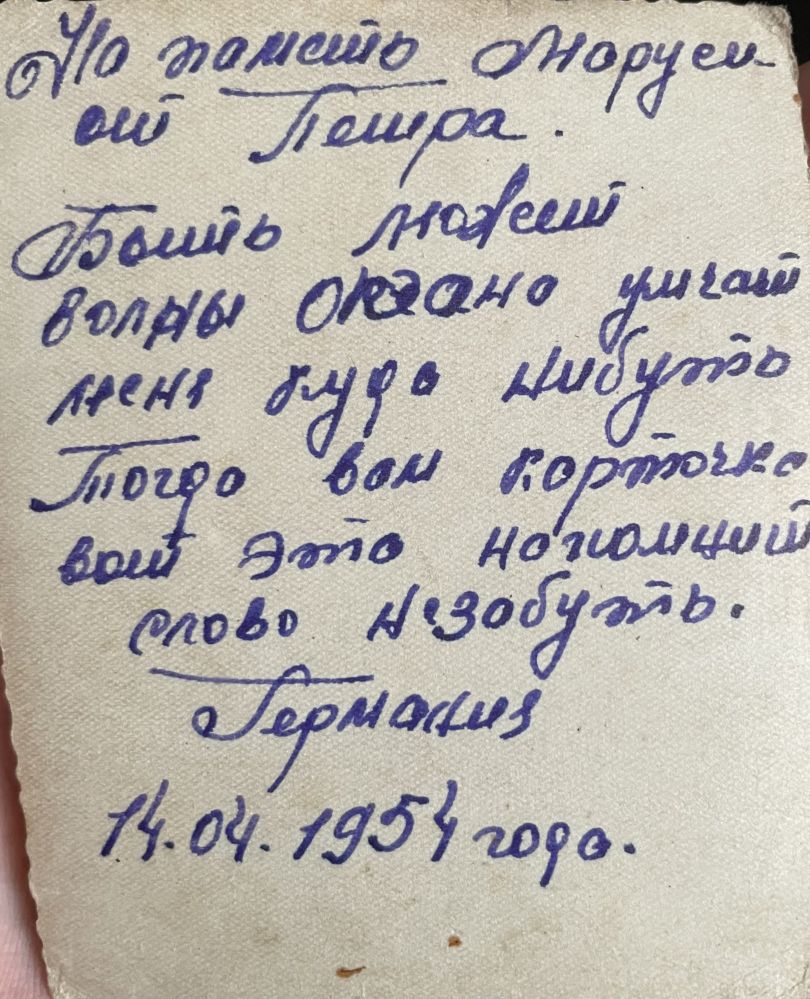 На память Маруси
от Петра.
Быть может
волны океана умчат
меня куда нибуть
Тогда вам карточка
вот эта напомнит
слово незабуть.
Германия
14.04.1954 года.